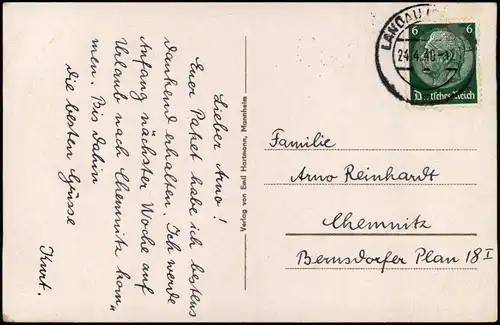 Lieber Arno!
Euer Paket habe ich bestens
dankend erhalten. Ich werde
Anfang nächster Woche auf
Urlaub nach Chemnitz kom„
men. Bis dahin
die besten Grüsse
Kurt.
Verlag von Emil Hartmann, Mannheim
LANDAU
24.4.40
6 6
Deutsches Reich
Familie
Arno Reinhardt
Chemnitz
Bernsdorfer Plan 18 I